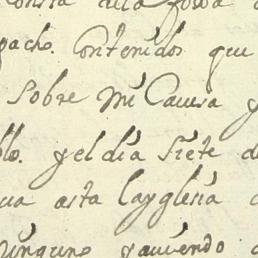 pacho. Contenidos que
sobre mi Causa y
blo. y el dia siete de
ua asta la yglesia
ninguno y auiendo